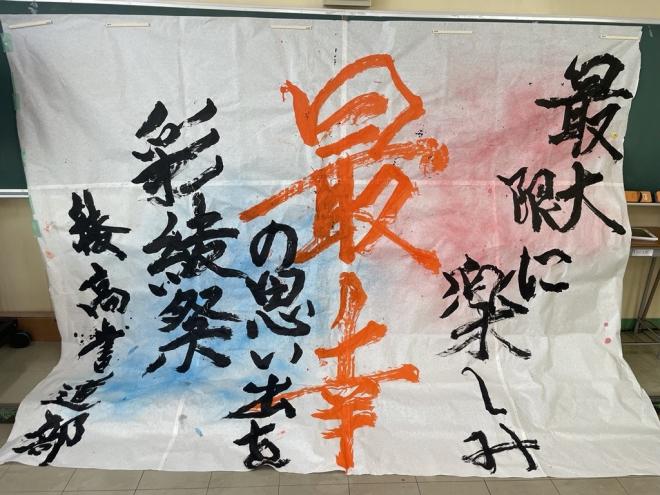 最大
限に
楽しみ
最幸
の思い出を
彩綾祭
綾高書道部